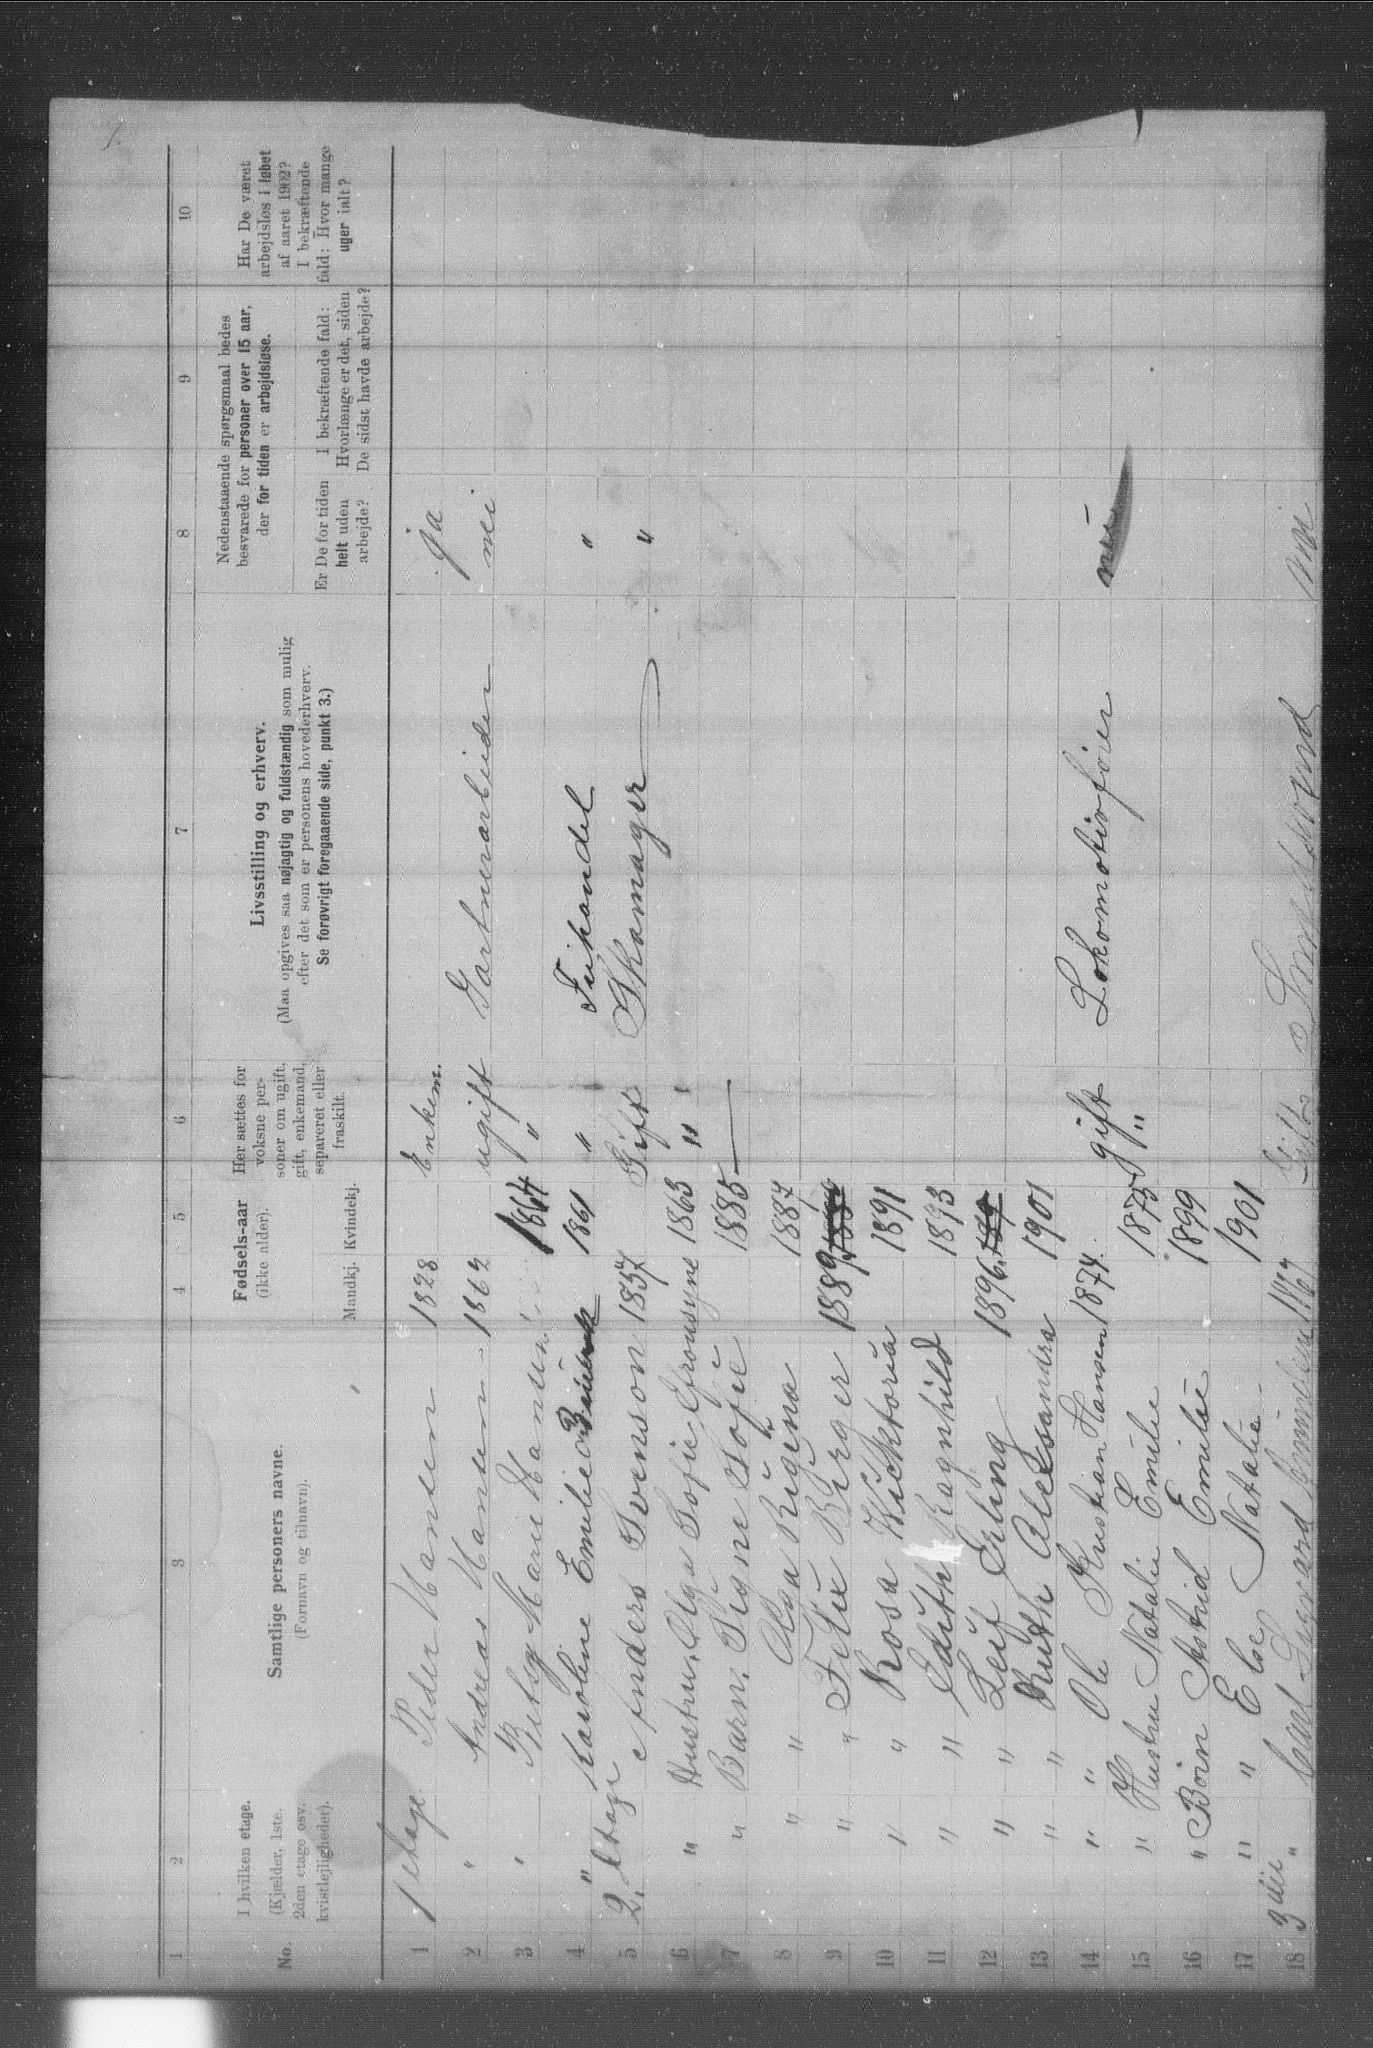 1 2 3 4 5 6 7 8 9 10
No.
I hvilken etage.
(Kjælder, 1ste.
2den etage osv.
kvistlejligheder).
Samtlige personers navne.
(Fornavn og tilnavn).
Fødsels-aar
(ikke alder).
Mandkj. Kvindekj.
Her sættes for
voksne per-
soner om ugift,
gift, enkemand,
separeret eller
fraskilt.
Livsstilling og erhverv.
(Maa opgives saa nøjagtig og fuldstændig som mulig
efter det som er personens hovederhverv.
Se forøvrigt foregaaende side, punkt 3.)
Nedenstaaende spørgsmaal bedes
besvarede for personer over 15 aar,
der for tiden er arbejdsløse.
Er De for tiden
helt uden
arbejde?
I bekræftende fald:
Hvorlænge er det, siden
De sidst havde arbejde?
Har De været
arbejdsløs i løbet
af aaret 1902?
I bekræftende
fald: Hvor mange
uger ialt?
1 1 etage Peder Hansen 1828 Enkem. ja
2 " Andreas Hansen 1862 ugift Gartnerarbeider nei
3 " Betsy Marie Hansen 1864 "
4 " Karoline Emilie 1861 " Frihandel "
5 2. Etage Anders Svenson 1857 Gift Skomager "
6 " Hustru, Olga Sofie Efrousyne 1863 "
7 " Barn, Signe Sofie 1885
8 " " Olga Regina 1887
9 " " Felix Birger 1889
10 " " Rosa Wicktoria 1891
11 " " Edith Ragnhild 1893
12 " " Leif Erling 1896
13 " " Ruth Alecsandra 1901
14 " " Ole Kristian Hansen 1874 gift Lokomotivfører nei
15 " Hustru Natalie Emilie 1873 "
16 " Børn Astrid Emilie 1899
17 " " Else Natalie 1901
18 3die " Carl Sigvard 1867 Gift nei